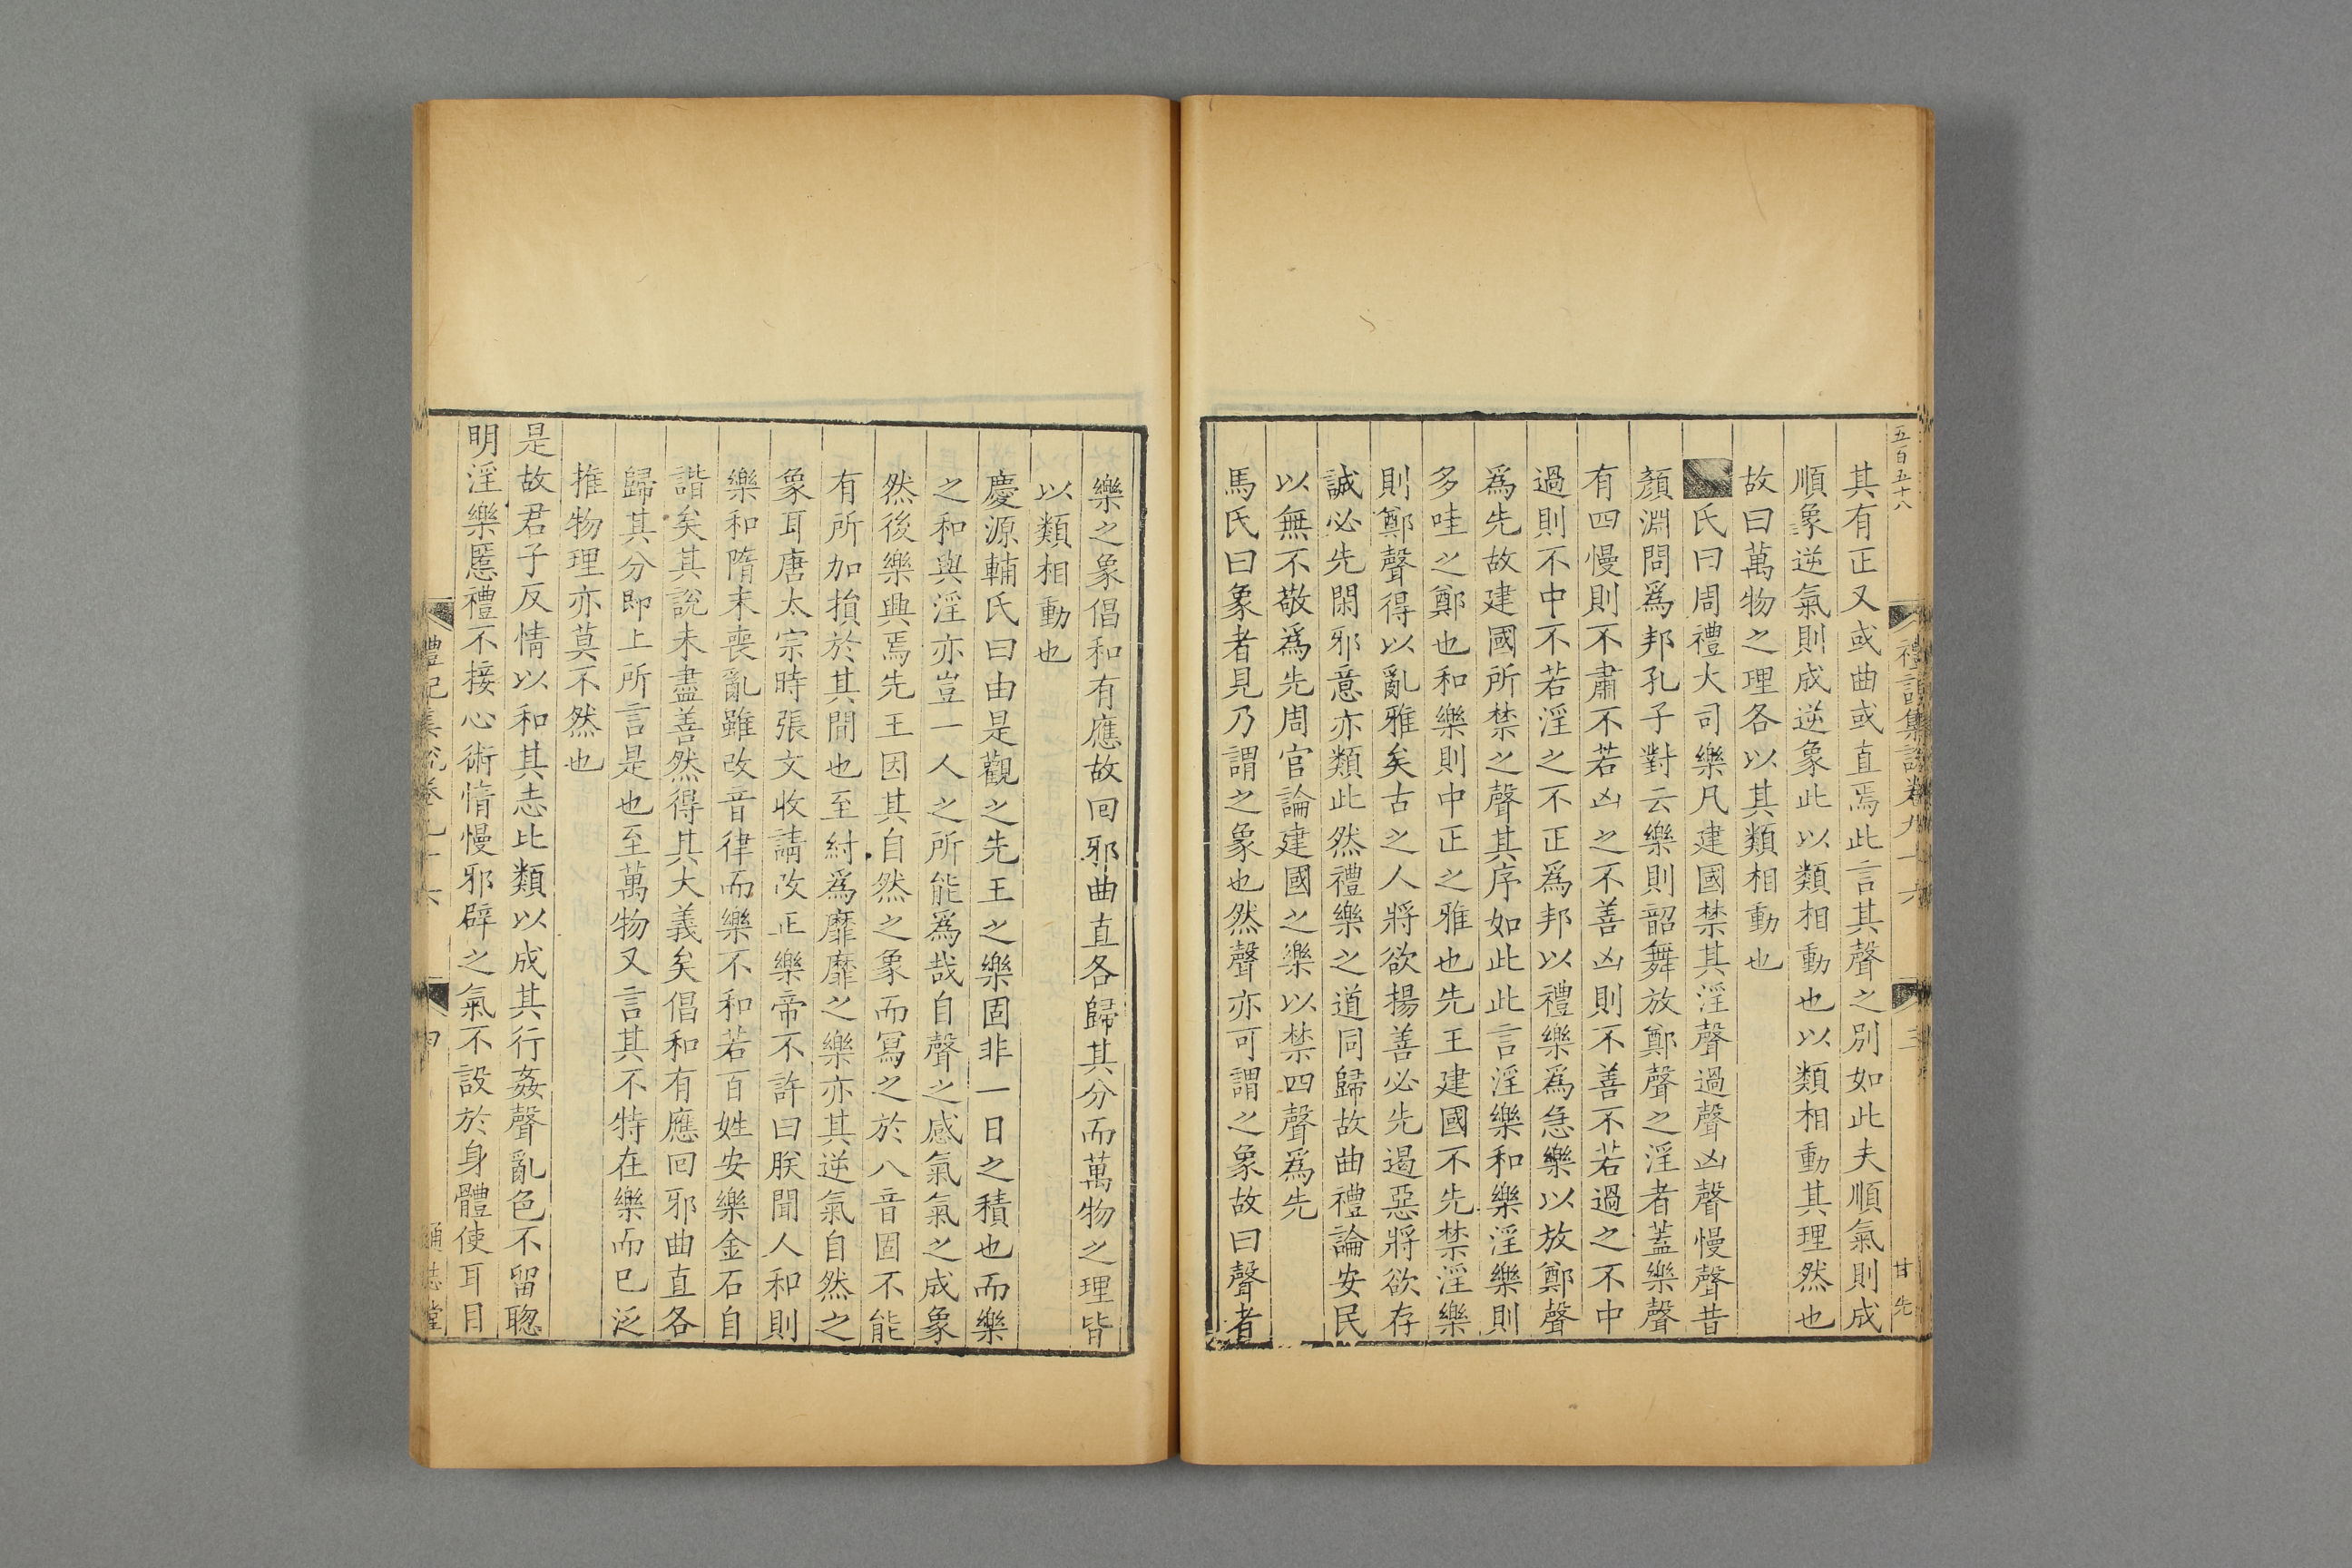 五百五十八
禮記集說卷九十六
三
甘先
其有正又或曲或直焉此言其聲之別如此夫順氣則成
順象逆氣則成逆象此以類相動也以類相動其理然也
故曰萬物之理各以其類相動也
氏曰周禮大司樂凡建國禁其淫聲過聲凶聲慢聲昔
顏淵問爲邦孔子對云樂則韶舞放鄭聲之淫者蓋樂聲
有四慢則不肅不若凶之不善凶則不善不若過之不中
過則不中不若淫之不正爲邦以禮樂爲急樂以放鄭聲
爲先故建國所禁之聲其序如此此言淫樂和樂淫樂則
多哇之鄭也和樂則中正之雅也先王建國不先禁淫樂
則鄭聲得以亂雅矣古之人將欲揚善必先遏惡將欲存
誠必先閑邪意亦類此然禮樂之道同歸故曲禮論安民
以無不敬爲先周官論建國之樂以禁四聲爲先
馬氏曰象者見乃謂之象也然聲亦可謂之象故曰聲者
樂之象倡和有應故回邪曲直各歸其分而萬物之理皆
以類相動也
慶源輔氏曰由是觀之先王之樂固非一日之積也而樂
之和與淫亦豈一人之所能爲哉自聲之感氣氣之成象
然後樂興焉先王因其自然之象而寫之於八音固不能
有所加損於其間也至紂爲靡靡之樂亦其逆氣自然之
象耳唐太宗時張文收請改正樂帝不許曰朕聞人和則
樂和隋末喪亂雖改音律而樂不和若百姓安樂金石自
諧矣其說未盡善然得其大義矣倡和有應回邪曲直各
歸其分即上所言是也至萬物又言其不特在樂而已泛
推物理亦莫不然也
是故君子反情以和其志比類以成其行姦聲亂色不留聰
明淫樂慝禮不接心術惰慢邪辟之氣不設於身體使耳目
禮記集說卷九十六
四
通志堂